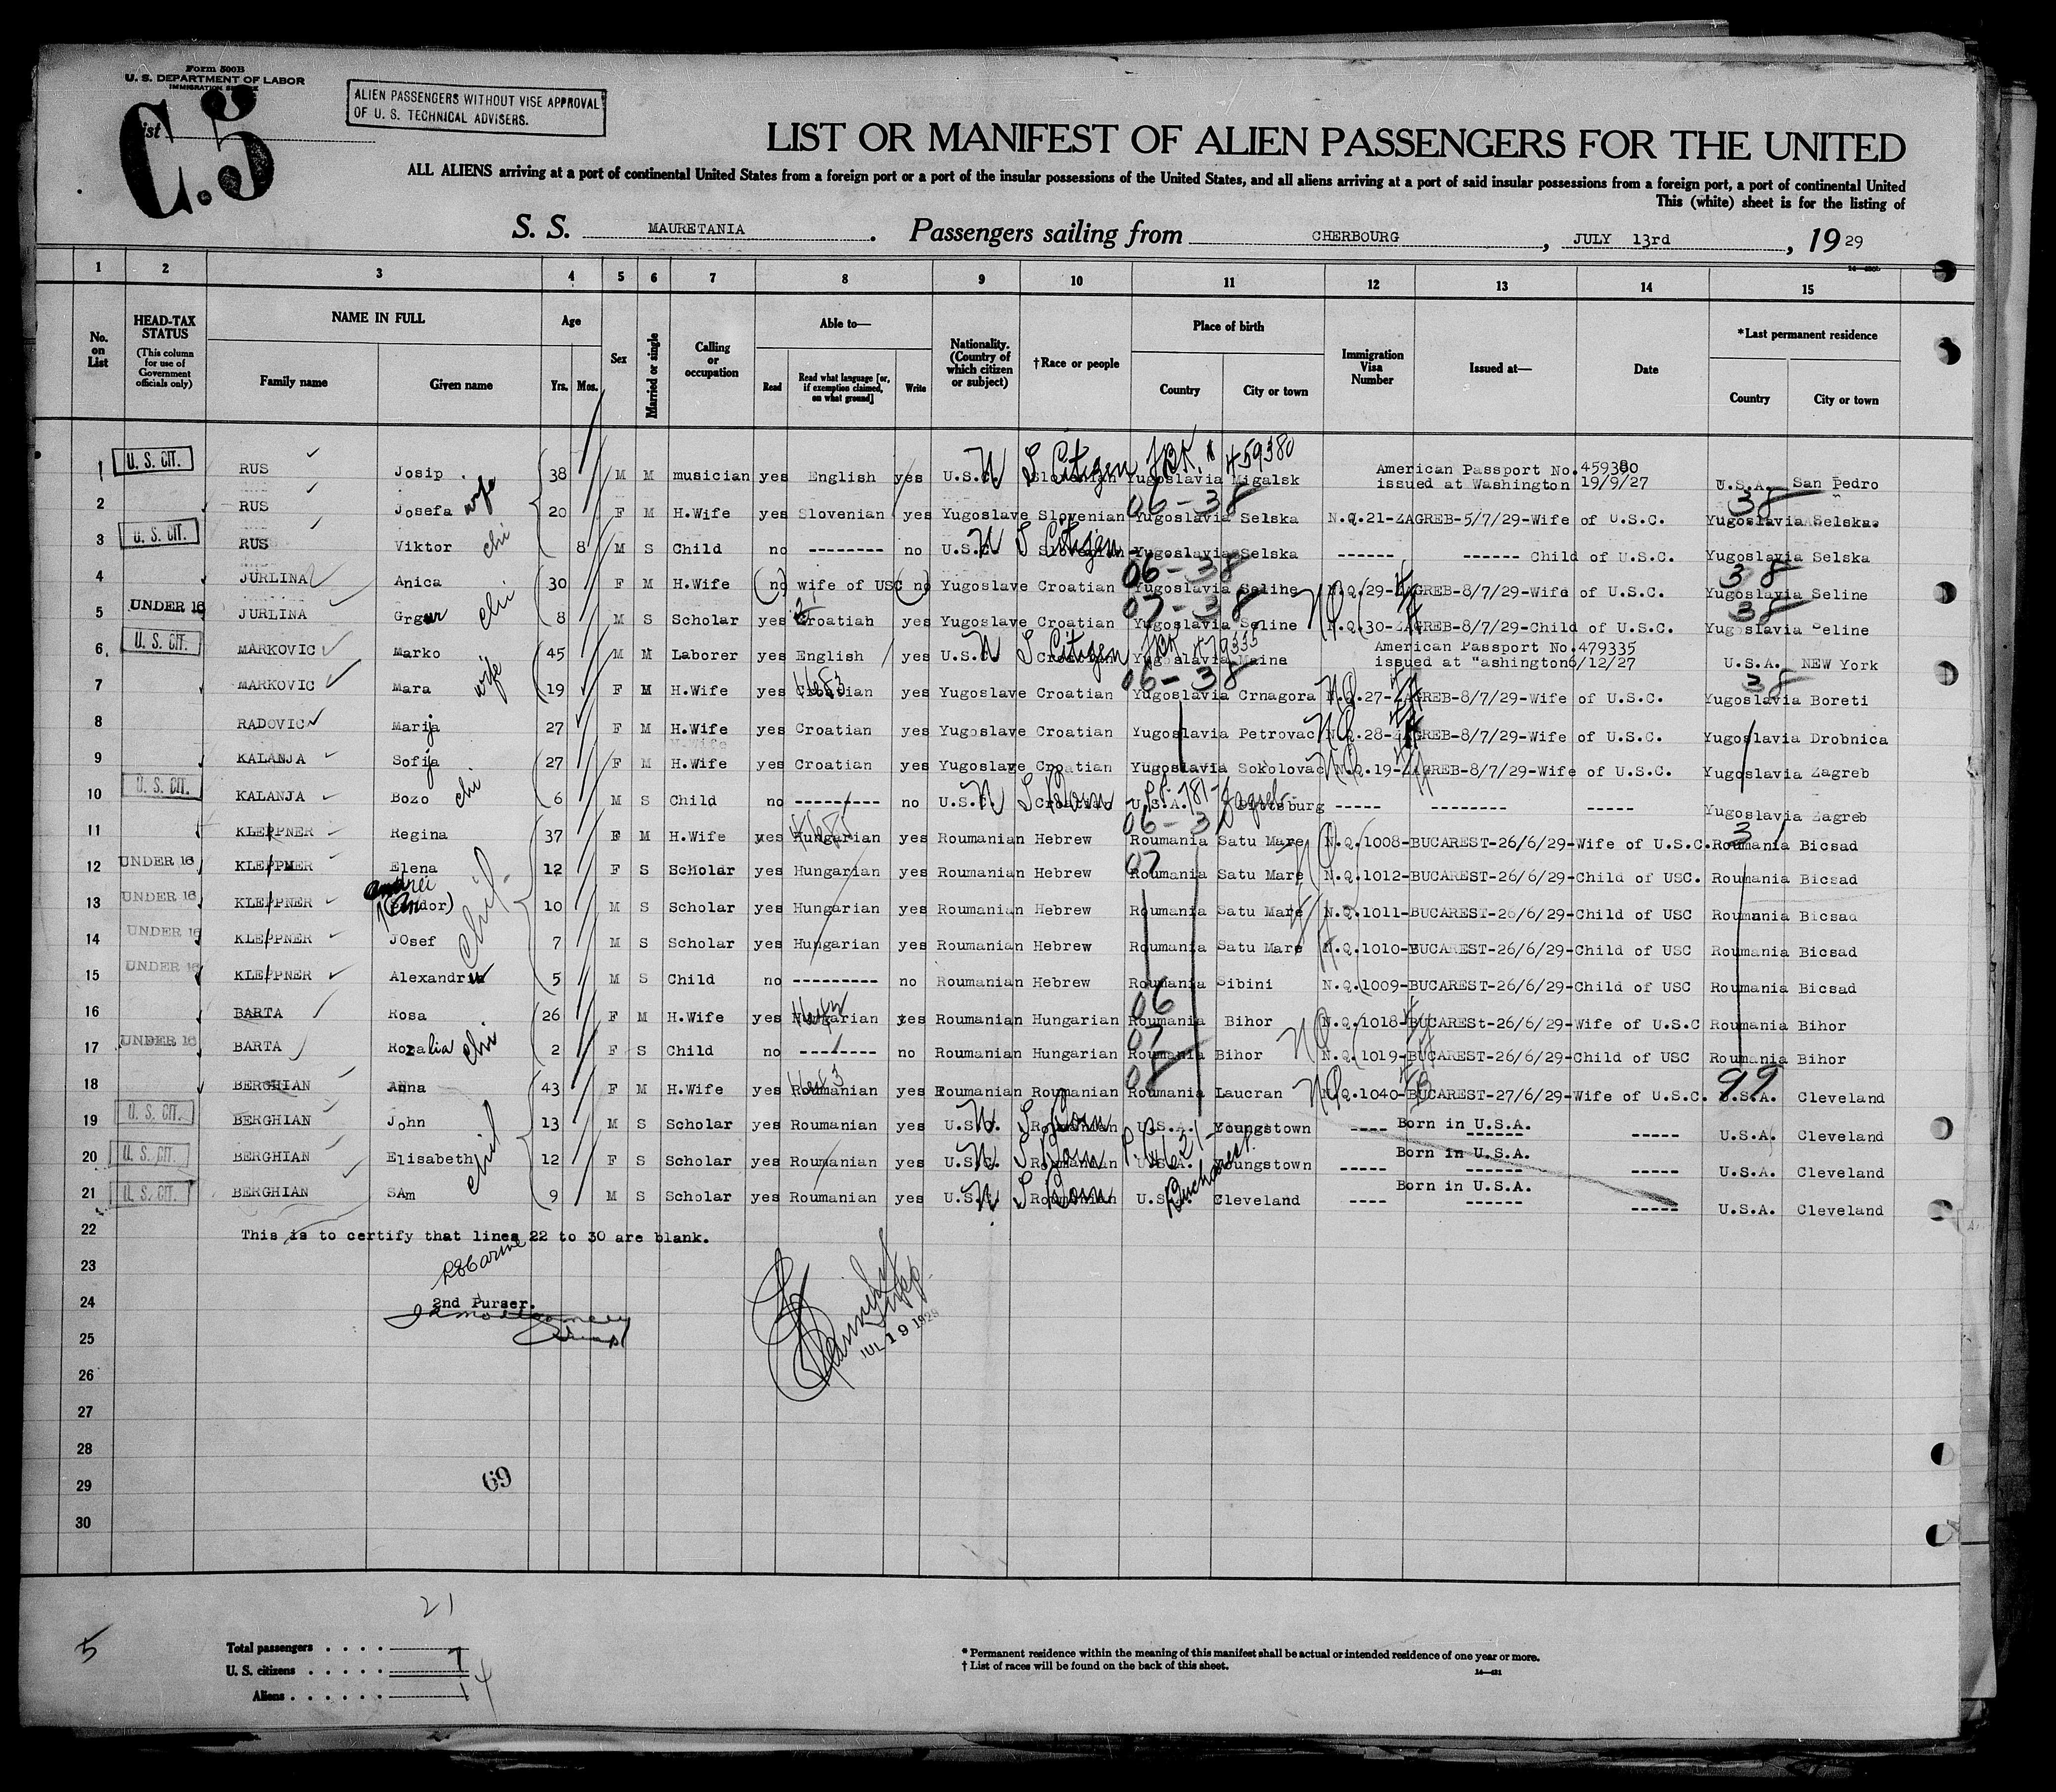 Form 500B
U. S. DEPARTMENT OF LABOR
IMMIGRATION SERVICE
List
C.5
ALIEN PASSENGERS WITHOUT VISE APPROVAL
OF U. S. TECHNICAL ADVISERS.
LIST OR MANIFEST OF ALIEN PASSENGERS FOR THE UNITED
ALL ALIENS arriving at a port of continental United States from a foreign port or a port of the insular possessions of the United States, and all aliens arriving at a port of said insular possessions from a foreign port, a port of continental United
This (white) sheet is for the listing of
S. S. MAURETANIA. Passengers sailing from CHERBOURG, JULY 13rd, 1929
1 2 3 4 5 6 7 8 9 10 11 12 13 14 15
No. on List
HEAD-TAX STATUS (This column for use of Government officials only)
NAME IN FULL
Family name Given name
Age
Yrs. Mos.
Sex
Married or single
Calling or occupation
Able to—
Read Read what language [or, if exemption claimed, on what ground] Write
Nationality. (Country of which citizen or subject)
†Race or people
Place of birth
Country City or town
Immigration Visa Number
Issued at—
Date
*Last permanent residence
Country City or town
1 U. S. CIT. RUS Josip 38 M M musician yes English yes U.S.C. Slovenian Yugoslavia Migalsk American Passport No.459380 issued at Washington 19/9/27 U.S.A. San Pedro
N S Citizen 459380
2 RUS Josefa wife 20 F M H.Wife yes Slovenian yes Yugoslave Slovenian Yugoslavia Selska N.Q.21-ZAGREB-5/7/29-Wife of U.S.C. Yugoslavia Selska
06-38 38
3 U. S. CIT. RUS Viktor chi 8 M S Child no --------- no U.S.C. Yugoslavia Selska ------ ------ Child of U.S.C. Yugoslavia Selska
N S Citizen
4 JURLINA Anica 30 F M H.Wife (no) wife of USC (no) Yugoslave Croatian Yugoslavia Seline N.Q.29-ZAGREB-8/7/29-Wife of U.S.C. Yugoslavia Seline
06-38 38
5 UNDER 16 JURLINA Grgur chi 8 M S Scholar yes Croatian yes Yugoslave Croatian Yugoslavia Seline N.Q.30-ZAGREB-8/7/29-Child of U.S.C. Yugoslavia Seline
07-38 38
6 U. S. CIT. MARKOVIC Marko 45 M M Laborer yes English yes U.S.C. Croatian Yugoslavia Maina American Passport No.479335 issued at "ashington6/12/27 U.S.A. NEW York
N S Citizen 479335
7 MARKOVIC Mara wife 19 F M H.Wife yes Croatian yes Yugoslave Croatian Yugoslavia Crnagora N.Q.27-ZAGREB-8/7/29-Wife of U.S.C. Yugoslavia Boreti
06-38 38
8 RADOVIC Marija 27 F M H.Wife yes Croatian yes Yugoslave Croatian Yugoslavia Petrovac N.Q.28-ZAGREB-8/7/29-Wife of U.S.C. Yugoslavia Drobnica
9 KALANJA Sofija 27 F M H.Wife yes Croatian yes Yugoslave Croatian Yugoslavia Sokolovac N.Q.19-ZAGREB-8/7/29-Wife of U.S.C. Yugoslavia Zagreb
10 U. S. CIT. KALANJA Bozo chi 6 M S Child no ---------- no U.S.C. Croatian U.S.A. Pittsburg ----- -------- ----- Yugoslavia Zagreb
N S Born
11 KLEPPNER Regina 37 F M H.Wife yes Hungarian yes Roumanian Hebrew Roumania Satu Mare N.Q.1008-BUCAREST-26/6/29-Wife of U.S.C. Roumania Bicsad
12 UNDER 16 KLEPPNER Elena 12 F S Scholar yes Hungarian yes Roumanian Hebrew Roumania Satu Mare N.Q.1012-BUCAREST-26/6/29-Child of USC. Roumania Bicsad
07
13 UNDER 16 KLEPPNER Andrei (Sandor) 10 M S Scholar yes Hungarian yes Roumanian Hebrew Roumania Satu Mare N.Q.1011-BUCAREST-26/6/29-Child of USC Roumania Bicsad
14 UNDER 16 KLEPPNER JOsef 7 M S Scholar yes Hungarian yes Roumanian Hebrew Roumania Satu Mare N.Q.1010-BUCAREST-26/6/29-Child of USC Roumania Bicsad
15 UNDER 16 KLEPPNER Alexandru 5 M S Child no ---------- no Roumanian Hebrew Roumania Sibini N.Q.1009-BUCAREST-26/6/29-Child of USC Roumania Bicsad
16 BARTA Rosa 26 F M H.Wife yes Hungarian yes Roumanian Hungarian Roumania Bihor N.Q.1018-BUCAREST-26/6/29-Wife of U.S.C Roumania Bihor
06
17 UNDER 16 BARTA Rozalia chi 2 F S Child no --------- no Roumanian Hungarian Roumania Bihor N.Q.1019-BUCAREST-26/6/29-Child of USC Roumania Bihor
07
18 BERGHIAN Anna 43 F M H.Wife yes Roumanian yes Roumanian Roumanian Roumania Laucran N.Q.1040-BUCAREST-27/6/29-Wife of U.S.C. U.S.A. Cleveland
99
19 U. S. CIT. BERGHIAN John 13 M S Scholar yes Roumanian yes U.S.C. Roumanian U.S.A. Youngstown ---- Born in U.S.A. ------ ----- U.S.A. Cleveland
N S Born
20 U. S. CIT. BERGHIAN Elisabeth 12 F S Scholar yes Roumanian yes U.S.C. Roumanian U.S.A. Youngstown ----- Born in U.S.A. ------ ----- U.S.A. Cleveland
N S Born
21 U. S. CIT. BERGHIAN SAm 9 M S Scholar yes Roumanian yes U.S.C. Roumanian U.S.A. Cleveland ---- Born in U.S.A. ------ ----- U.S.A. Cleveland
N S Born Bucharest
22 This is to certify that lines 22 to 30 are blank.
23
24 2nd Purser.
25
JUL 19 1929
26
27
28
29 69
30
21
5
Total passengers . . . .
U. S. citizens . . . . . 7
Aliens . . . . . . 14
* Permanent residence within the meaning of this manifest shall be actual or intended residence of one year or more.
† List of races will be found on the back of this sheet.
14—421